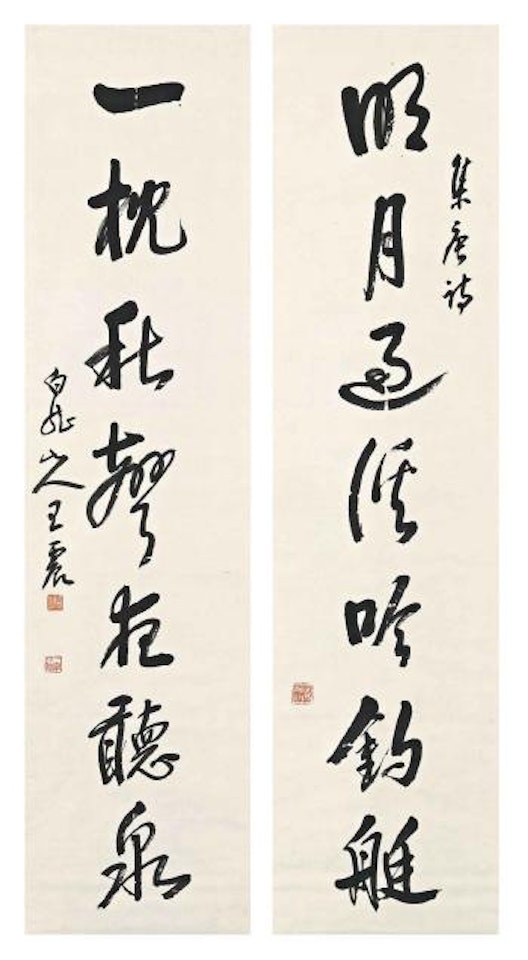 集唐詩
明月過溪吟釣艇
一枕秋聲夜聽泉
白龍山人王震